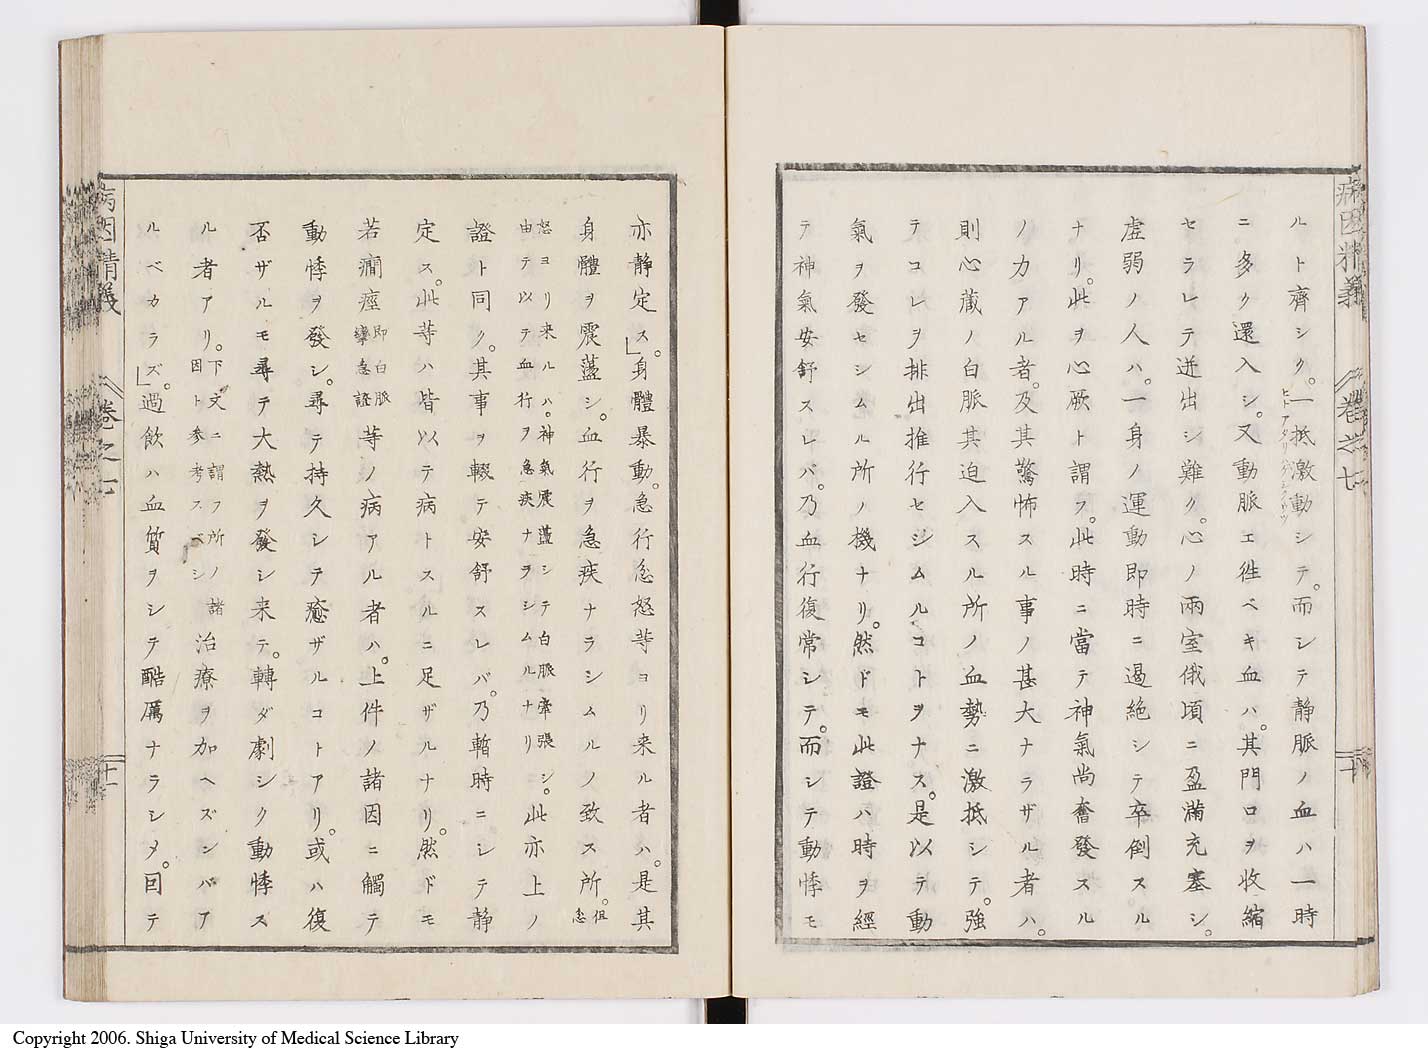 病因精義
卷之七
十
ルト齊シク。一抵激動シテ。而シテ静脈ノ血ハ一時
ヒトアタリ
ニ多ク還入シ。又動脈エ徃ベキ血ハ。其門口ヲ收縮
セラレテ迸出シ難ク。心ノ兩室俄頃ニ盈滿充塞シ。
虚弱ノ人ハ。一身ノ運動即時ニ遏絶シテ卒倒スル
ナリ。此ヲ心厥ト謂フ。此時ニ當テ神氣尚奮發スル
ノ力アル者。及其驚怖スル事ノ甚大ナラザル者ハ。
則心藏ノ白脈其迫入スル所ノ血勢ニ激抵シテ。強
テコレヲ排出推行セシムルコトヲナス。是以テ動
氣ヲ發セシムル所ノ機ナリ。然ドモ此證ハ時ヲ經
テ神氣安舒スレバ。乃血行復常シテ。而シテ動悸モ
亦静定ス。」身體暴動。急行忿怒等ヨリ来ル者ハ。是其
身體ヲ震蘯シ。血行ヲ急疾ナラシムルノ致ス所。但忿
怒ヨリ来ルハ。神氣震蘯シテ白脈牽張シ。
由テ以テ血行ヲ急疾ナヲシムルナリ
此亦上ノ
證ト同ク。其事ヲ輟テ安舒スレバ。乃暫時ニシテ静
定ス。此等ハ皆以テ病トスルニ足ザルナリ。然ドモ
若癇痙即白脈攣急證等ノ病アル者ハ。上件ノ諸因ニ觸テ
動悸ヲ發シ。尋テ持久シテ癒ザルコトアリ。或ハ復
否ザルモ尋テ大熱ヲ發シ来テ。轉ダ劇シク動悸ス
ル者アリ。下文ニ謂フ所ノ諸因ト参考スベシ治療ヲ加ヘズンバア
ルベカラズ。」過飲ハ血質ヲシテ酷厲ナラシメ。回テ
病因精義
卷之七
十一
Copyright 2006. Shiga University of Medical Science Library